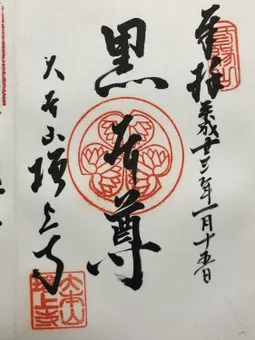 三縁山
奉拝 平成十三年一月十五日
黒本尊
大本山増上寺
大本山
増上寺